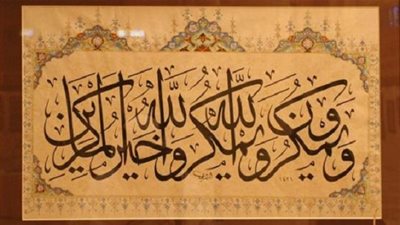 ويمكرون ويمكر الله والله خير الماكرين
١٤٢١